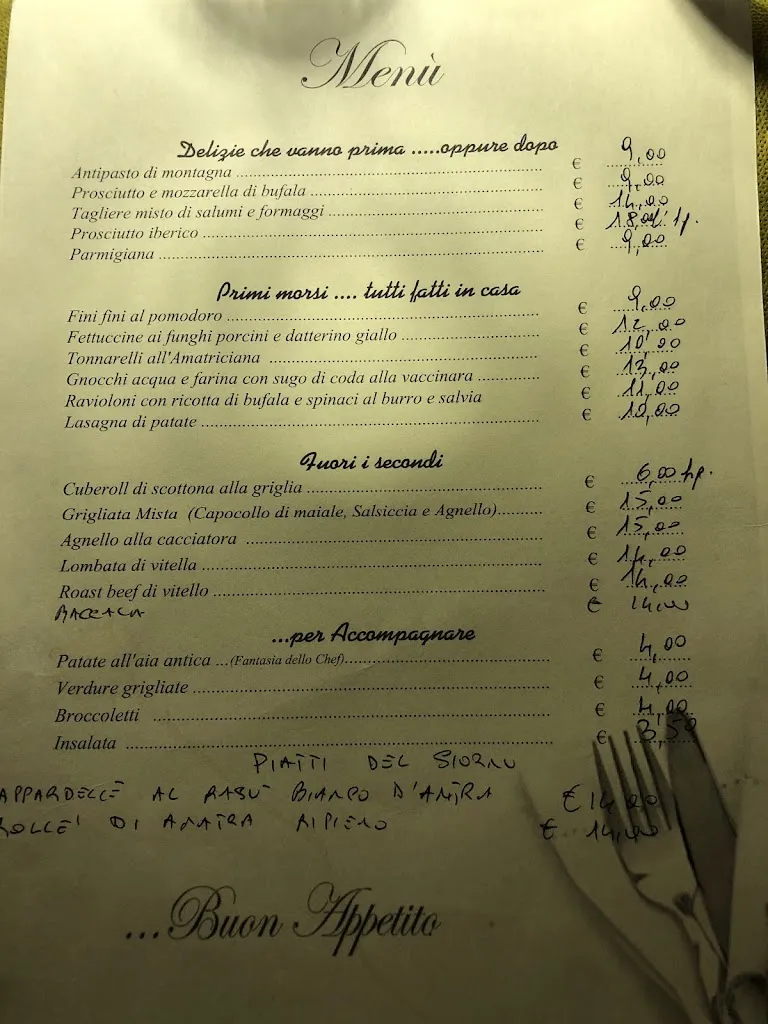 Menù
Delizie che vanno prima .....oppure dopo
Antipasto di montagna € 9,00
Prosciutto e mozzarella di bufala € 9,00
Tagliere misto di salumi e formaggi € 14,00
Prosciutto iberico € 18,00
Parmigiana € 9,00
Primi morsi .... tutti fatti in casa
Fini fini al pomodoro € 9,00
Fettuccine ai funghi porcini e datterino giallo € 12,00
Tonnarelli all'Amatriciana € 10,00
Gnocchi acqua e farina con sugo di coda alla vaccinara € 13,00
Ravioloni con ricotta di bufala e spinaci al burro e salvia € 11,00
Lasagna di patate € 10,00
Fuori i secondi
Cuberoll di scottona alla griglia € 6,00 hg.
Grigliata Mista (Capocollo di maiale, Salsiccia e Agnello) € 15,00
Agnello alla cacciatora € 15,00
Lombata di vitella € 14,00
Roast beef di vitello € 14,00
BACCALA € 14,00
...per Accompagnare
Patate all'aia antica ...(Fantasia dello Chef) € 4,00
Verdure grigliate € 4,00
Broccoletti € 4,00
Insalata € 3,50
PIATTI DEL GIORNO
APPARDELLE AL RAGU' BIANCO D'ANATRA € 14,00
ROLLE' DI ANATRA RIPIENO € 14,00
...Buon Appetito